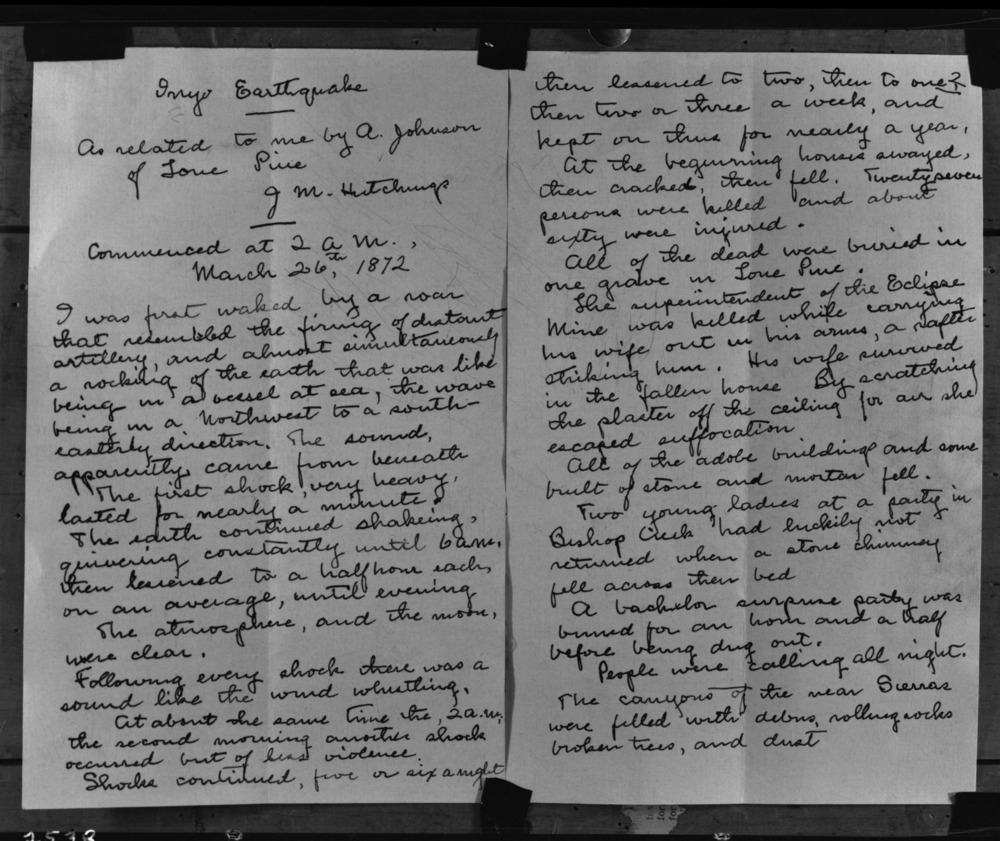 Inyo Earthquake
As related to me by A. Johnson
of Lone Pine
J M. Hutchings
Commenced at 2 a m.,
March 26th, 1872
I was first waked by a roar
that resembled the firing of distant
artillery, and almost simultaneously
a rocking of the earth that was like
being in a vessel at sea, the wave
being in a Northwest to a south-
easterly direction. The sound,
apparently, came from beneath
The first shock, very heavy,
lasted for nearly a minute.
The earth continued shakeing,
quivering constantly until 6 a m.
then lessened to a half hour each,
on an average, until evening
The atmosphere, and the moon,
were clear.
Following every shock there was a
sound like the wind whistling.
At about the same time the, 2 a.m.
the second morning another shock
occurred but of less violence.
Shocks continued, five or six a night
then lessened to two, then to one?
then two or three a week, and
kept on thus for nearly a year,
At the beginning houses swayed,
then cracked, then fell. Twentyseven
persons were killed and about
sixty were injured.
All of the dead were buried in
one grave in Lone Pine.
The superintendent of the Eclipse
Mine was killed while carrying
his wife out in his arms, a rafter
striking him. His wife survived
in the fallen house By scratching
the plaster off the ceiling for air she
escaped suffocation
All of the adobe buildings and some
built of stone and mortar fell.
Two young ladies at a party in
Bishop Creek had luckily not
returned when a stone chimney
fell across their bed
A bachelor surprise party was
buried for an hour and a half
before being dug out.
People were calling all night.
The canyons of the near Sierras
were filled with debris, rolling rocks
broken trees, and dust
2538